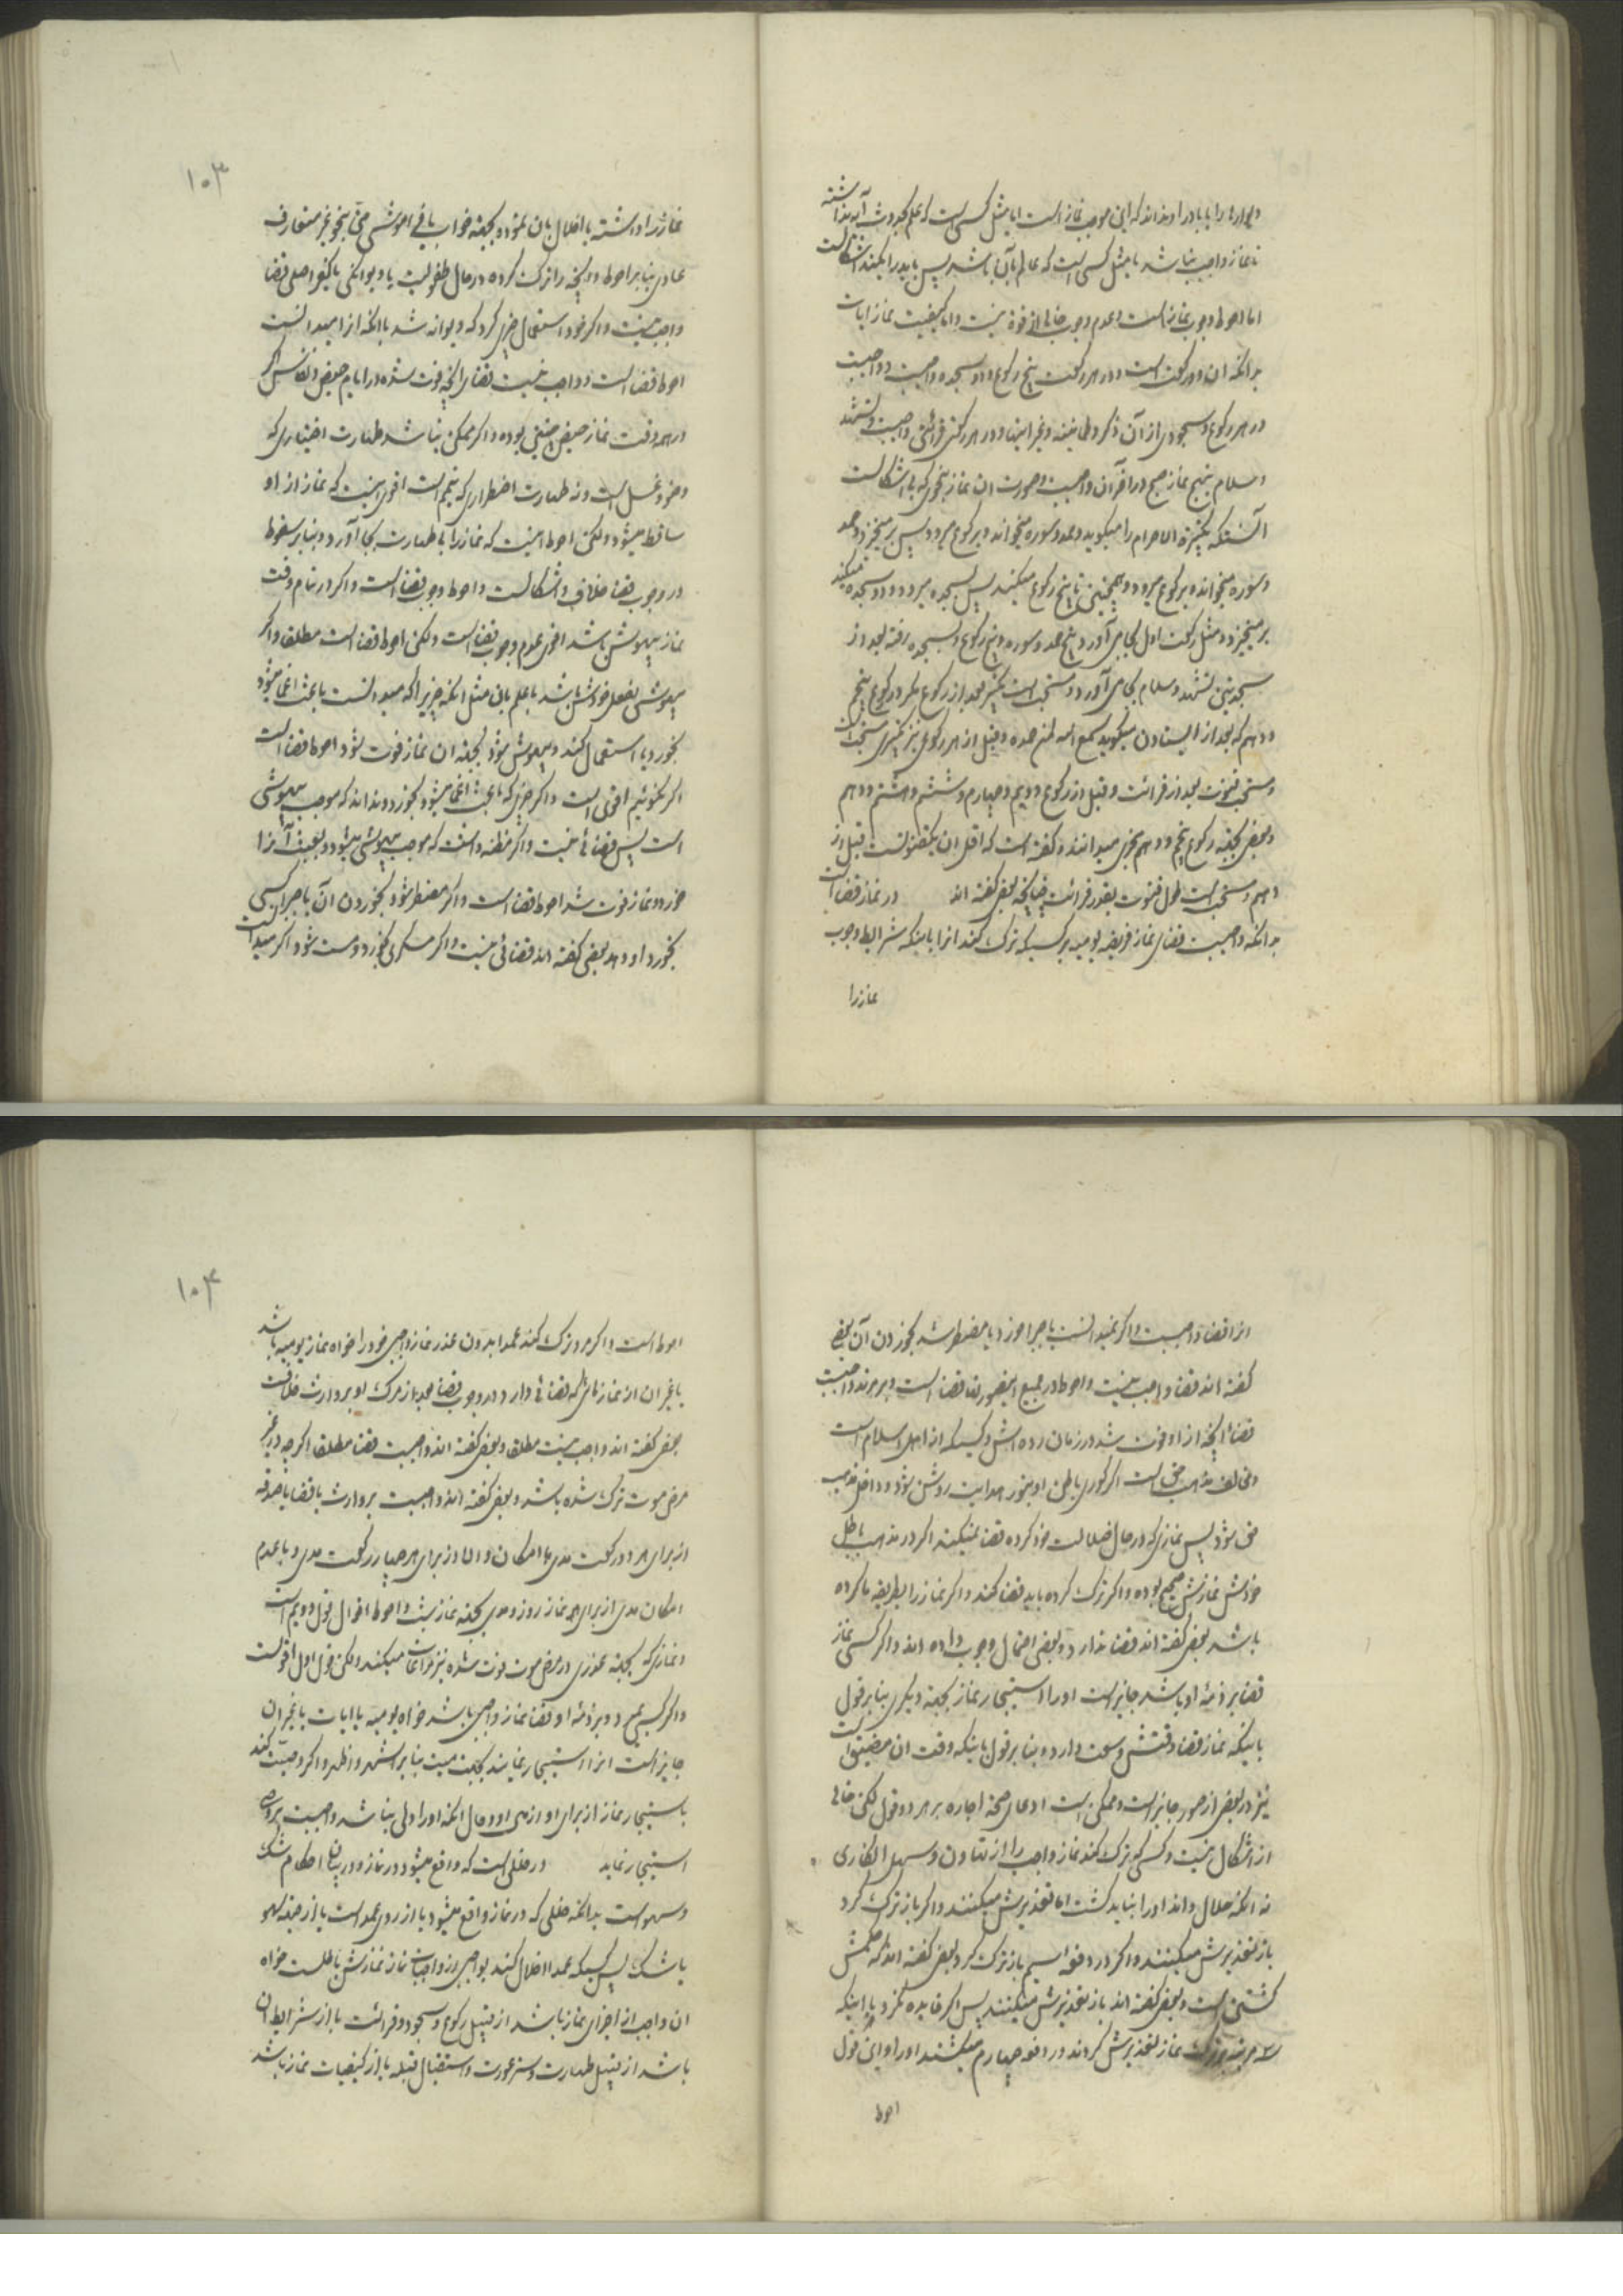 نماز واجب نباشد یا مثل کسی است که عالم بآن باشد پس باید ادا بکند اشکالست
اما احوط وجوب نماز است و عدم وجوب خالی از قوة نیست و اما کیفیت نماز ایات
بدانکه ان دو رکعت است و در هر رکعت پنج رکوع و دو سجده واجبست و واجبست
در هر رکوع و سجودی از آن ذکر و طمانینه و غیر اینها و در هر رکنی قرائتی واجبست و تشهد
و سلام بنهج نماز صبح در آخر آن واجبست و صورت ان نماز بنحوی که بی اشکالست
آنستکه تکبیرة الاحرام را میکوید و حمد و سوره میخواند و برکوع میرود پس برمیخیزد و حمد
و سوره میخواند و برکوع میرود و همچنین تا پنج رکوع میکند پس بسجده میرود و دو سجده میکند
برمیخیزد و مثل رکعت اول بجا می آورد پنج حمد و سوره و پنج رکوع و بسجده رفته بعد از
سجدتین تشهد و سلام بجا می آورد و مستحب است تکبیر بعد از رکوع مکر در رکوع پنجم
و دهم که بعد از ایستادن میکوید سمع الله لمن حمده و قبل از هر رکوعی نیز تکبیری مستحب است
و مستحب قنوت بعد از قرائت و قبل از رکوع دویم و چهارم و ششم و هشتم و دهم
و بعضی بجهة رکوع پنجم و دهم مجزی میدانند و کفته است که اقل ان یکقنوتست قبل از
دهم و مستحب است طول قنوت بقدر قرائت چنانچه بعضی کفته اند در نماز قضا است
بدانکه واجبست قضای نماز فریضه یومیه بر کسیکه ترک کند انرا با اینکه شرایط وجوب
نماز را
۱۰۳
نماز را داشته یا اخلال بان نموده بجهة خواب یا فراموشی حتی بنحو غیر متعارف
عادی بنابر احوط و آنچه را ترک کرده در حال طفولیت یا دیوانکی یا کفر اصلی قضا
واجب نیست و اکر خود استعمال چیزی کرد که دیوانه شد با انکه انرا میدانست
احوط قضا است و واجب نیست قضا را آنچه فوت شده در ایام حیض و نفاس اکر
در همه وقت نماز حیض چنین بوده و اکر ممکن نباشد طهارت اختیاری که
وضو و غسل است و نه طهارت اضطراری که تیمم است اقوی اینست که نماز از او
ساقط میشود ولکن احوط اینست که نماز را با طهارت بجا آورد و بنابر سقوط
در وجوب قضا خلاف و اشکالست و احوط وجوب قضا است و اکر در تمام وقت
نماز بیهوش باشد اقوی عدم وجوب قضا است ولکن احوط قضا است مطلقا و اکر
بیهوشی بفعل خودش باشد با علم بان مثل انکه چیزیرا که میدانست باعث اغما میشود
بخورد یا استعمال کند و بیهوش شود بجهة ان نماز فوت شود احوط قضا است
اکر نکوئیم اقوی است و اکر چیزی که باعث اغما میشود بخورد و نداند که موجب بیهوشی
است پس قضائی نیست و اکر مظنه داشت که موجب بیهوشی میشود و بعبث آنرا
خورد و نماز فوت شد احوط قضا است و اکر مضطر شود بخوردن آن یا جبرا کسی
بخورد او دهد بعضی کفته اند قضائی نیست و اکر مسکری بخورد و مست شود اکر میدانست
انرا قضا واجبست و اکر نمیدانست یا جبرا خورد یا مضطر شد بخوردن آن بعضی
کفته اند قضا واجب نیست و احوط در جمیع اینصورتها قضا است و بر مرتد واجبست
قضا آنچه از او فوت شد در زمان رده اش و کسیکه از اهل اسلام است
و مخالف مذهب حق است اکر کوری باطن او بنور هدایت روشن شود و داخل مذهب
حق شود پس نمازی که در حال ضلالت خود کرده قضا نمیکند اکر در مذهب باطل
خودش نمازش صحیح بوده و اکر ترک کرده باید قضا کند و اکر نماز را بطریقه ما کرده
باشد بعضی کفته اند قضا ندارد و بعضی احتمال وجوب داده اند و اکر کسی نماز
قضا بر ذمة او باشد جایز است او را استیجار نماز بجهة دیکری بنابر قول
باینکه نماز قضا وقتش وسعت دارد و بنابر قول باینکه وقت ان مضیق است
نیز در بعضی از صور جایز است و ممکن است ادعای صحة اجاره بر هر دو قول لکن خالی
از اشکال نیست و کسی که ترک کند نماز واجب را از تهاون و سهل انکاری
نه انکه حلال داند او را نباید کشت اما تعذیرش میکنند و اکر باز ترک کرد
باز تعذیرش میکنند و اکر در دفعه سیم باز ترک کرد بعضی کفته اند که حکمش
کشتن است و بعضی کفته اند باز تعذیرش میکنند پس اکر فایده نکرد با اینکه
سه مرتبه بترک نماز تعذیرش کردند در دفعه چهارم میکشند او را و این قول
احوط
۱۰۴
احوط است و اکر مرد ترک کند عمدا بدون عذر نماز واجبی خود را خواه نماز یومیه باشد
یا غیر ان از نمازهائی که قضائی دارد در وجوب قضا بعد از مرک او بر وارث خلافست
بعضی کفته اند واجب نیست مطلقا و بعضی کفته اند واجبست قضا مطلقا اکرچه در غیر
مرض موت ترک شده باشد و بعضی کفته اند واجبست بر وارث یا قضا یا صدقه
از برای هر دو رکعت مدی با امکان و الا از برای هر چهار رکعت مدی و با عدم
امکان مدی از برای هر نماز روز و مدی بجهة نماز شب و احوط اقوال قول دویم است
و نمازی که بجهة عذری در مرض موت فوت شده نیز مراعات میکند ولکن قول اول اقوست
جایز است انرا استیجار نمایند بجهت میت بنابر اشهر و اظهر و اکر وصیت کند
باستیجار نماز از برای او از مال او و حال انکه او را ولی نباشد واجبست بر وصی
استیجار نماید در خللی است که واقع میشود در نماز و در بیان احکام شک
و سهو است بدانکه خللی که در نماز واقع میشود یا از روی عمد است یا از جهة سهو
یا شک پس کسیکه عمدا اخلال کند بواجبی از واجبات نماز نمازش باطلست خواه
ان واجب از اجزای نماز باشد از قبیل رکوع و سجود و قرائت یا از شرایط ان
باشد از قبیل طهارت و ستر عورت و استقبال قبله یا از کیفیات نماز باشد